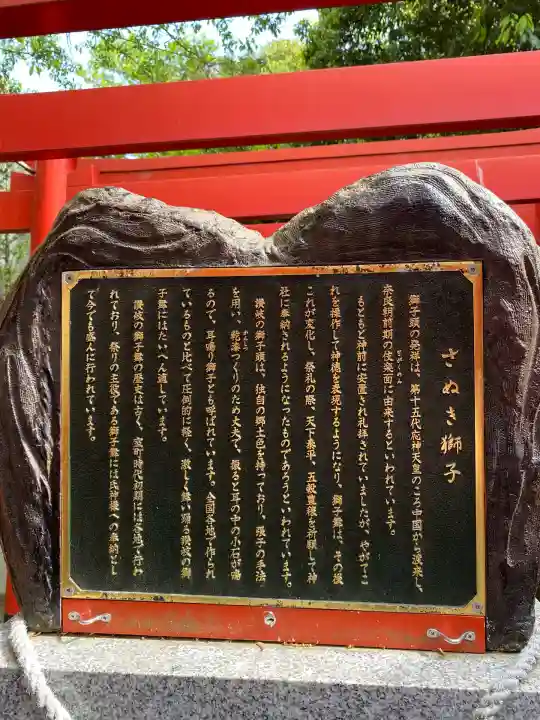 さぬき獅子
獅子頭の発祥は、第十五代応神天皇のころ中国から渡来し、
奈良朝前期の伎楽面に由来するといわれています。
もともと神前に安置され礼拝されていましたが、やがてこ
れを操作して神徳を表現するようになり、獅子舞は、その後
これが変化し、祭礼の際、天下泰平、五穀豊穣を祈願して神
社に奉納されるようになったものであろうといわれています。
讃岐の獅子頭は、独自の郷土色を持っており、張子の手法
を用い、乾漆づくりのため丈夫で、振ると耳の中の小石が鳴
るので、耳鳴り獅子とも呼ばれています。全国各地で作られ
ているものと比べて圧倒的に軽く、激しく舞い踊る讃岐の獅
子舞にはたいへん適しています。
讃岐の獅子舞の歴史は古く、室町時代初期にはすでに行わ
れており、祭りの主役である獅子舞には氏神様への奉納とし
て今でも盛んに行われています。